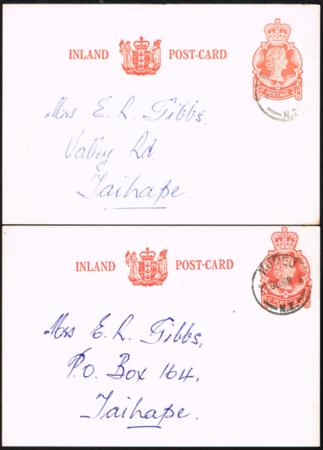 INLAND POST-CARD
POSTAGE
N.Z.
Mrs E. R. Gibbs,
Valley Rd.
Taihape.
INLAND POST-CARD
N.Z.
Mrs E. R. Gibbs,
P.O. Box 164,
Taihape.